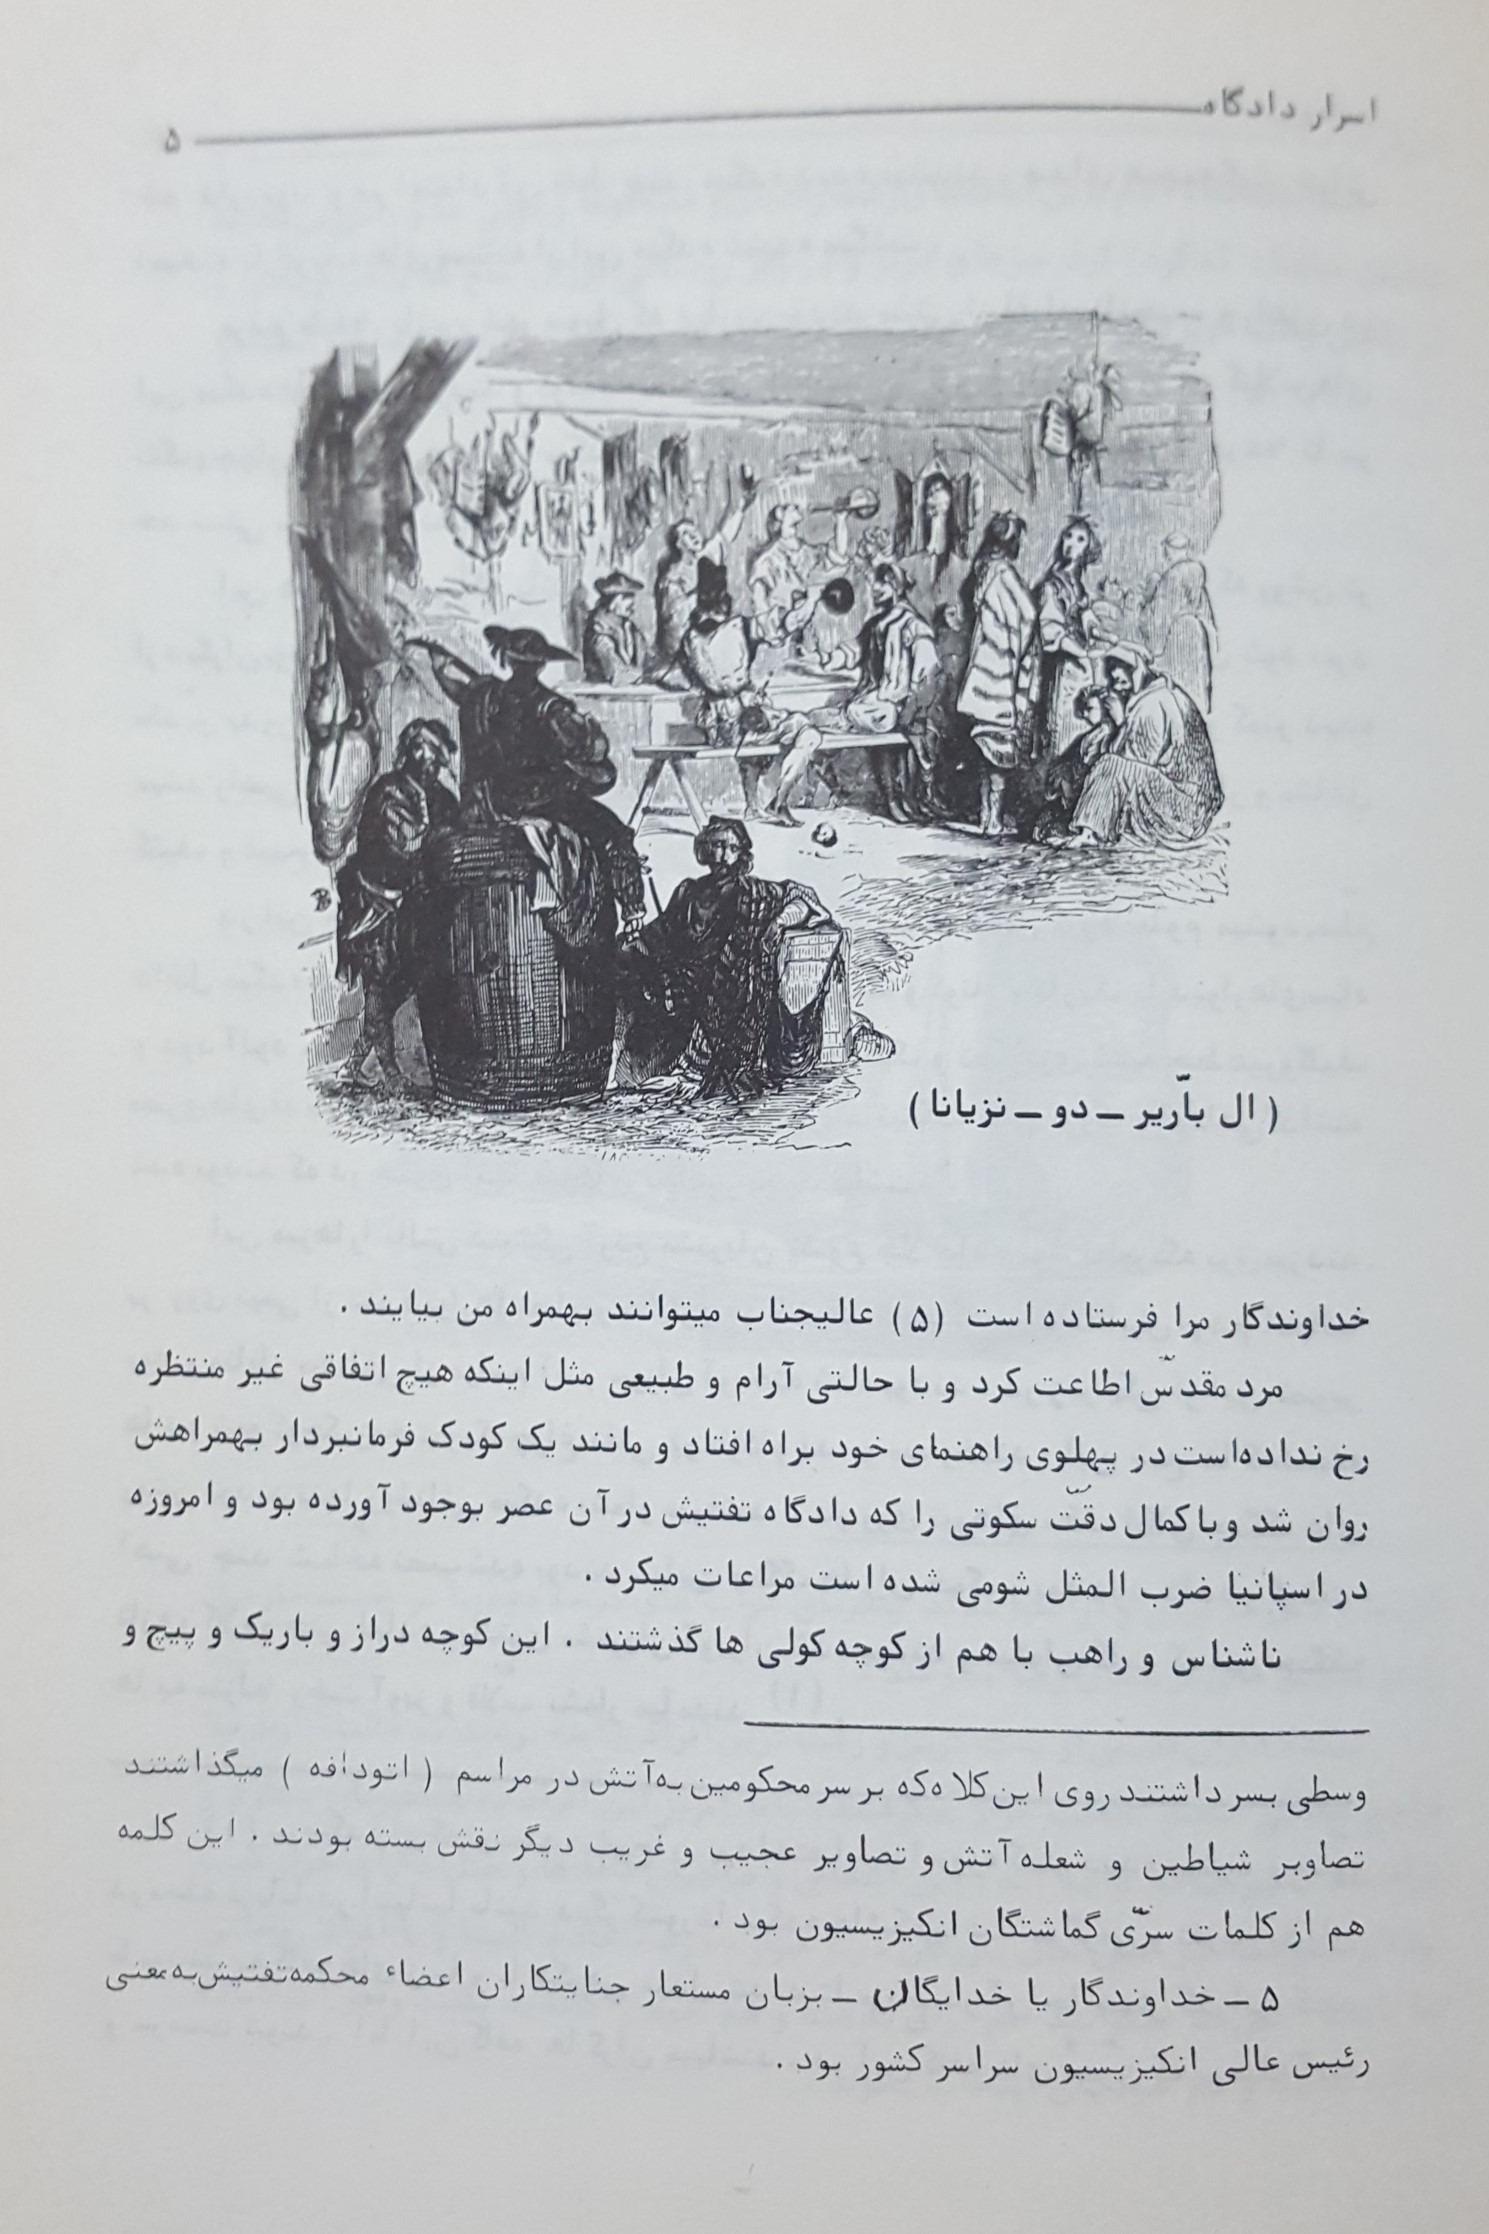 اسرار دادگاه
۵
( ال باّریر ــ دو ــ نزیانا )
خداوندگار مرا فرستاده است (۵) عالیجناب میتوانند بهمراه من بیایند .
مرد مقدسّ اطاعت کرد و با حالتی آرام و طبیعی مثل اینکه هیچ اتفاقی غیر منتظره
رخ نداده‌است در پهلوی راهنمای خود براه افتاد و مانند یک کودک فرمانبردار بهمراهش
روان شد و با کمال دقتّ سکوتی را که دادگاه تفتیش در آن عصر بوجود آورده بود و امروزه
در اسپانیا ضرب المثل شومی شده است مراعات میکرد .
ناشناس و راهب با هم از کوچه کولی ها گذشتند . این کوچه دراز و باریک و پیچ و
وسطی بسر داشتند روی این کلاه که بر سر محکومین به آتش در مراسم ( اتودافه ) میگذاشتند
تصاویر شیاطین و شعله آتش و تصاویر عجیب و غریب دیگر نقش بسته بودند . این کلمه
هم از کلمات سرّی گماشتگان انکیزیسیون بود .
۵ ــ خداوندگار یا خدایگان ــ بزبان مستعار جنایتکاران اعضاء محکمه تفتیش به معنی
رئیس عالی انکیزیسیون سراسر کشور بود .